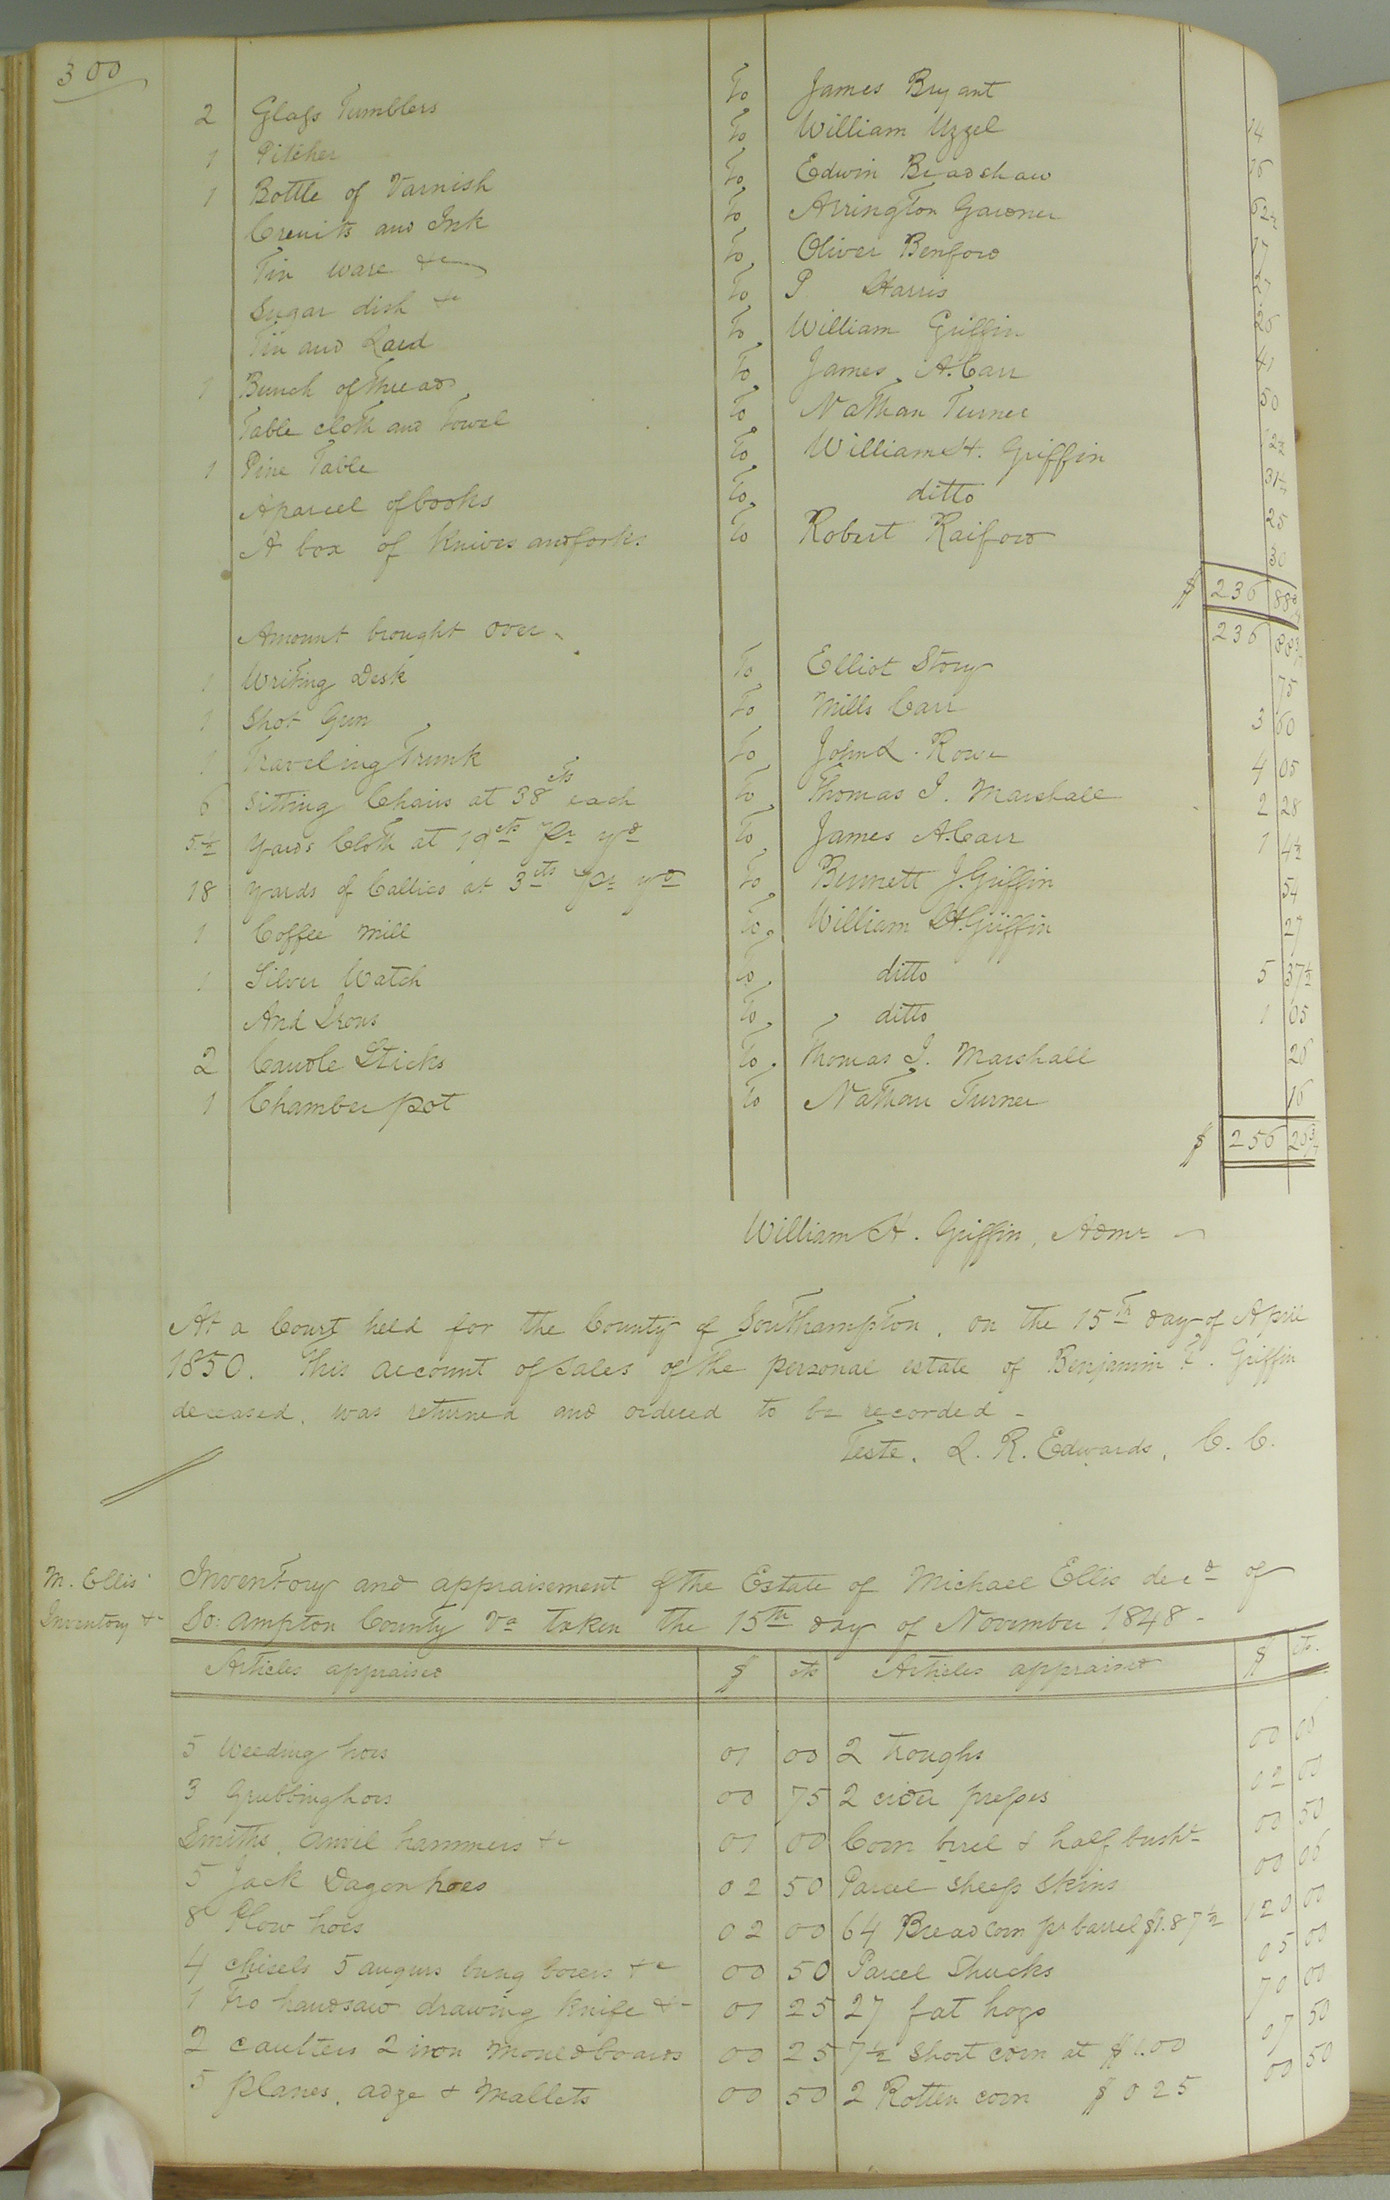 300
2 Glass Tumblers To James Bryant 14
1 Pitcher To William Uzzel 16
1 Bottle of Varnish To Edwin Bradshaw 62½
Creuits and Ink To Arrington Gardner 17
Tin ware &c To Oliver Benford 27
Sugar dish &c To P Harris 26
Tin and Lard To William Griffin 41
1 Bunch of Thread To James A. Carr 50
Table cloth and Towel To Nathan Turner 12½
1 Pine Table To William H. Griffin 31½
A parcel of books To ditto 25
A box of Knives and forks To Robert Raiford 30
$ 236 88¾
Amount brought over 236 88¾
1 Writing Desk To Elliot Story 75
1 Shot Gun To Mills Carr 3 60
1 Traveling Trunk To John L. Rowe 4 05
6 Sitting Chairs at 38 cts each To Thomas J. Marshall 2 28
5½ Yards Cloth at 19 cts Pr yd To James A. Carr 1 4½
18 Yards of Callico at 3 cts Pr yd To Bennett J. Griffin 54
1 Coffee Mill To William H. Griffin 27
1 Silver Watch To ditto 5 37½
And Irons To ditto 1 05
2 Candle Sticks To Thomas J. Marshall 26
1 Chamber pot To Nathan Turner 16
$ 256 26¾
William H. Griffin, Admr
At a Court held for the County of Southampton, on the 15th day of April
1850. This account of sales of the personal estate of Benjamin F. Griffin
deceased, was returned and ordered to be recorded -
Teste. L. R. Edwards, C. C.
M. Ellis' Inventory and appraisement of the Estate of Michael Ellis decd of
Inventory &c So: ampton County Va taken the 15th day of November 1848 -
Articles appraised $ cts Articles appraised $ cts.
5 Weeding hoes 01 00 2 troughs 00 06
3 Grubbing hoes 00 75 2 cider presses 02 00
Smiths, anvil hammers &c 01 00 Corn birel & half bushl 00 50
5 Jack Dagon hoes 02 50 Parcel sheep skins 00 06
8 Plow hoes 02 00 64 Bread corn pr barrel $1.87½ 120 00
4 chisels 5 augurs bung borers &c 00 50 Parcel Shucks 05 00
1 fro handsaw drawing Knife &c 01 25 27 fat hogs 70 00
2 caulters 2 iron mouldboards 00 25 7½ short corn at $1.00 07 50
5 Planes, adze & Mallets 00 50 2 Rotten corn $0 25 00 50